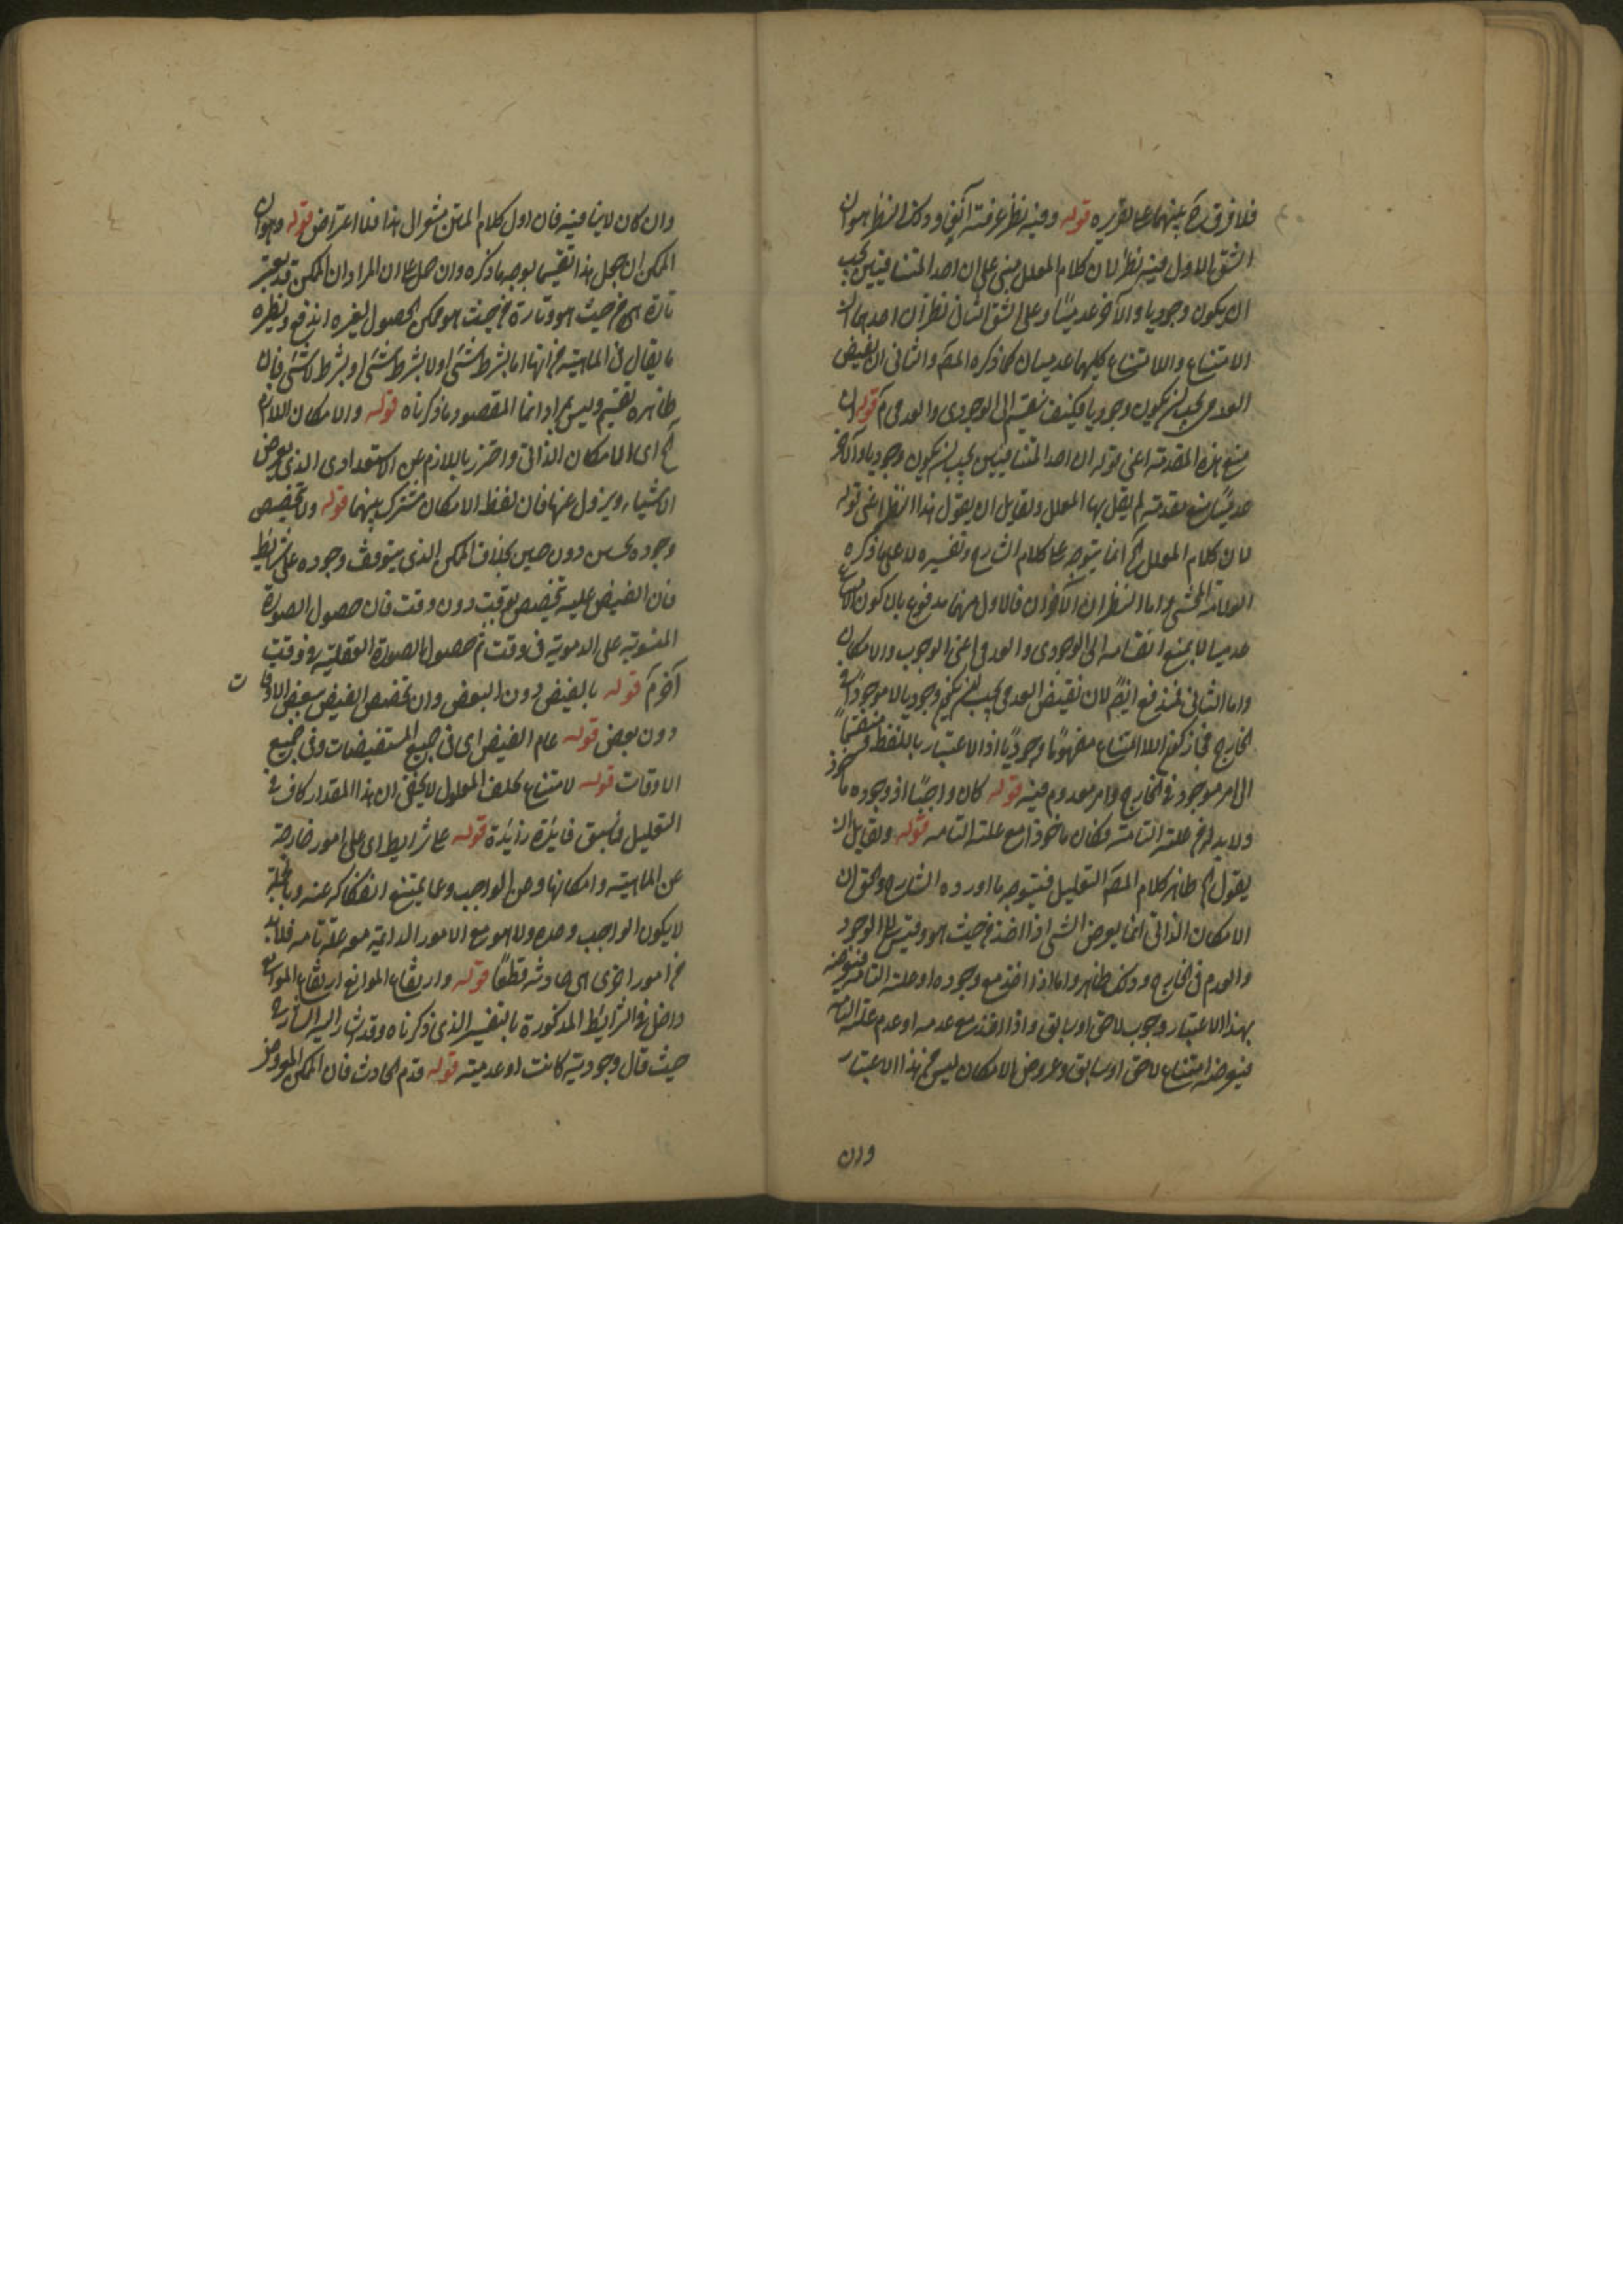 فلا فرق ح بينهما على تقريره قوله وفيه نظر عرفته آنفا وذلك النظر هو ان
الشق الاول فيه نظر لان كلام المعلل مبنى على ان احد المتنافيين يجب
ان يكون وجوديا والآخر عدميا وعلى الشق الثانى نظر ان احدهما ان
الامتناع واللا امتناع كليهما عدميان كما ذكره المص والثانى ان نقيض
العدمى يجب ان يكون وجوديا فكيف ينقسم الى الوجودى والعدمى قوله ان
منع هذه المقدمة اعنى قوله ان احد المتنافيين يجب ان يكون وجوديا والآخر
عدميا منع مقدمة لم يقل بها المعلل ولقايل ان يقول هذا النظر اعنى قوله
لان كلام المعلل الخ انما يتوجه على كلام الشارح وتفسيره لا على ما ذكره
العلامة المحشى واما النظران الآخران فالاول منهما مدفوع بان كون الامتناع
عدميا لا يمنع انقسامه الى الوجودى والعدمى اعنى الوجوب والامكان
واما الثانى فمندفع ايضا لان نقيض العدمى يجب ان يكون وجوديا لا موجودا فى
الخارج فجاز كون اللا امتناع مفهوما وجوديا اذ الاعتبار باللفظ منقسما
الى امر موجود فى الخارج وامر معدوم فيه قوله كان واجبا اذ وجوده ماخوذ
ولا بد له من علته التامة فكان ماخوذا مع علته التامه قوله ولقايل ان
يقول الخ ظاهر كلام المص التعليل فيتوجه ما اورده الشارح والحق ان
الامكان الذاتى انما يعرض الشى اذا اخذ من حيث هو وقيس الى الوجود
والعدم فى الخارج وذلك ظاهر واما اذا اخذ مع وجوده او علته التامة فيعرضه
بهذا الاعتبار وجوب لاحق او سابق واذا اخذ مع عدمه او عدم علته التامه
فيعرضه امتناع لاحق او سابق وعروض الامكان ليس من هذا الاعتبار
وان
وان كان لا ينافيه فان اول كلام المتن مشعر ال هذا فلا اعتراض قوله وهو ان
الممكن ان جعل هذا تقسيما يوجه ما ذكره وان حمل على ان المراد ان الممكن قد يعتبر
تارة من حيث هو وتارة من حيث هو ممكن الحصول لغيره اندفع ونظيره
ما يقال فى الماهية من انها اما بشرط شئ او لا بشرط شئ او بشرط لا شئ فان
ظاهره تقسيم وليس بمراد انما المقصود ما ذكرناه قوله والامكان اللازم
الخ اى الامكان الذاتى واحترز باللازم عن الاستعدادى الذى يعرض
الاشياء ويزول عنها فان لفظ الامكان مشترك بينهما قوله ولا تخصيص
وجوده بحين دون حين بخلاف الممكن الذى يتوقف وجوده على شرايط
فان الفيض عليه تخصيص بوقت دون وقت فان حصول الصورة
المنوية على الدموية فى وقت ثم حصول الصورة العقلية فى وقت
آخر قوله بالفيض دون البعض وان تخصص الفيض ببعض الاوقات
دون بعض قوله عام الفيض اى فى جميع المستفيضات وفى جميع
الاوقات قوله لامتناع تخلف المعلول لا يخفى ان هذا المقدار كاف فى
التعليل فما سبق فايدة زايدة قوله على شرايط اى على امور خارجة
عن الماهية وامكانها وعن الواجب وعما يمتنع انفكاكه عنه وبالجملة
لا يكون الواجب وحده ولا هو مع الامور الدائمة معه علة تامه فلا بد
من امور اخرى هى حادثه قطعا قوله وارتفاع الموانع ارتفاع الموانع
داخل فى الشرايط المذكورة بالتفسير الذى ذكرناه وقد اشار اليه الشارح
حيث قال وجودية كانت او عدمية قوله قدم الحادث فان الممكن المعروض